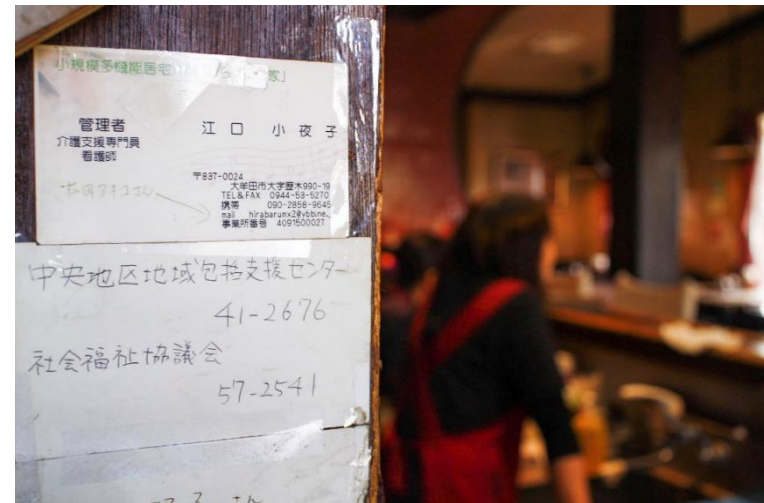 小規模多機能居宅
家」
管理者
江口 小夜子
介護支援専門員
看護師
〒837-0024
大牟田市大字歴木990-19
TEL&FAX 0944-53-5270
携帯 090-2858-9645
mail hirabarumx2@ybb.ne.
事業所番号 4091500027
中央地区地域包括支援センター
41-2676
社会福祉協議会
57-2541